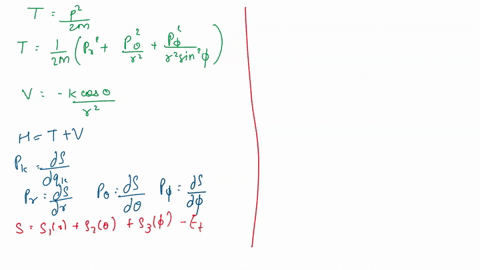 T = p²/2m
T = 1/2m (Pr² + Pθ²/r² + Pφ²/r²sin²φ)
V = -k cosθ/r²
H = T + V
Pk = dS/dqk
Pr = dS/dr Pθ = dS/dθ Pφ = dS/dφ
S = S₁(r) + S₂(θ) + S₃(φ) - Et